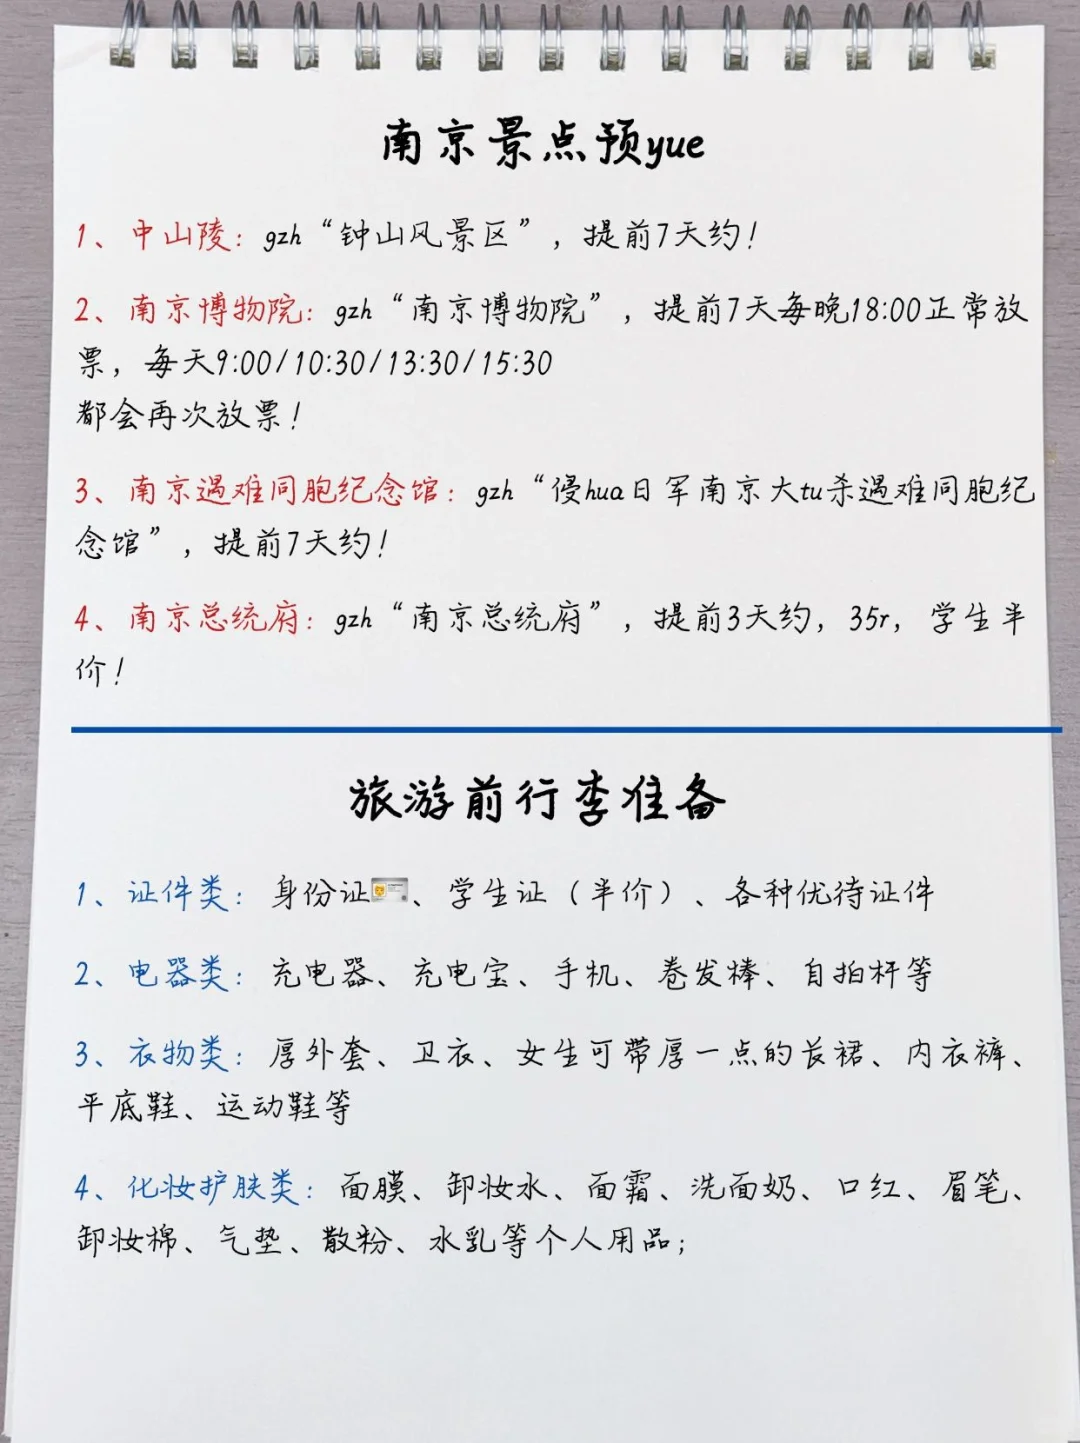 南京景点预yue
1、中山陵：gzh“钟山风景区”，提前7天约！
2、南京博物院：gzh“南京博物院”，提前7天每晚18:00正常放
票，每天9:00/10:30/13:30/15:30
都会再次放票！
3、南京遇难同胞纪念馆：gzh“侵hua日军南京大tu杀遇难同胞纪
念馆”，提前7天约！
4、南京总统府：gzh“南京总统府”，提前3天约，35r，学生半
价！
旅游前行李准备
1、证件类：身份证🪪、学生证（半价）、各种优待证件
2、电器类：充电器、充电宝、手机、卷发棒、自拍杆等
3、衣物类：厚外套、卫衣、女生可带厚一点的长裙、内衣裤、
平底鞋、运动鞋等
4、化妆护肤类：面膜、卸妆水、面霜、洗面奶、口红、眉笔、
卸妆棉、气垫、散粉、水乳等个人用品；